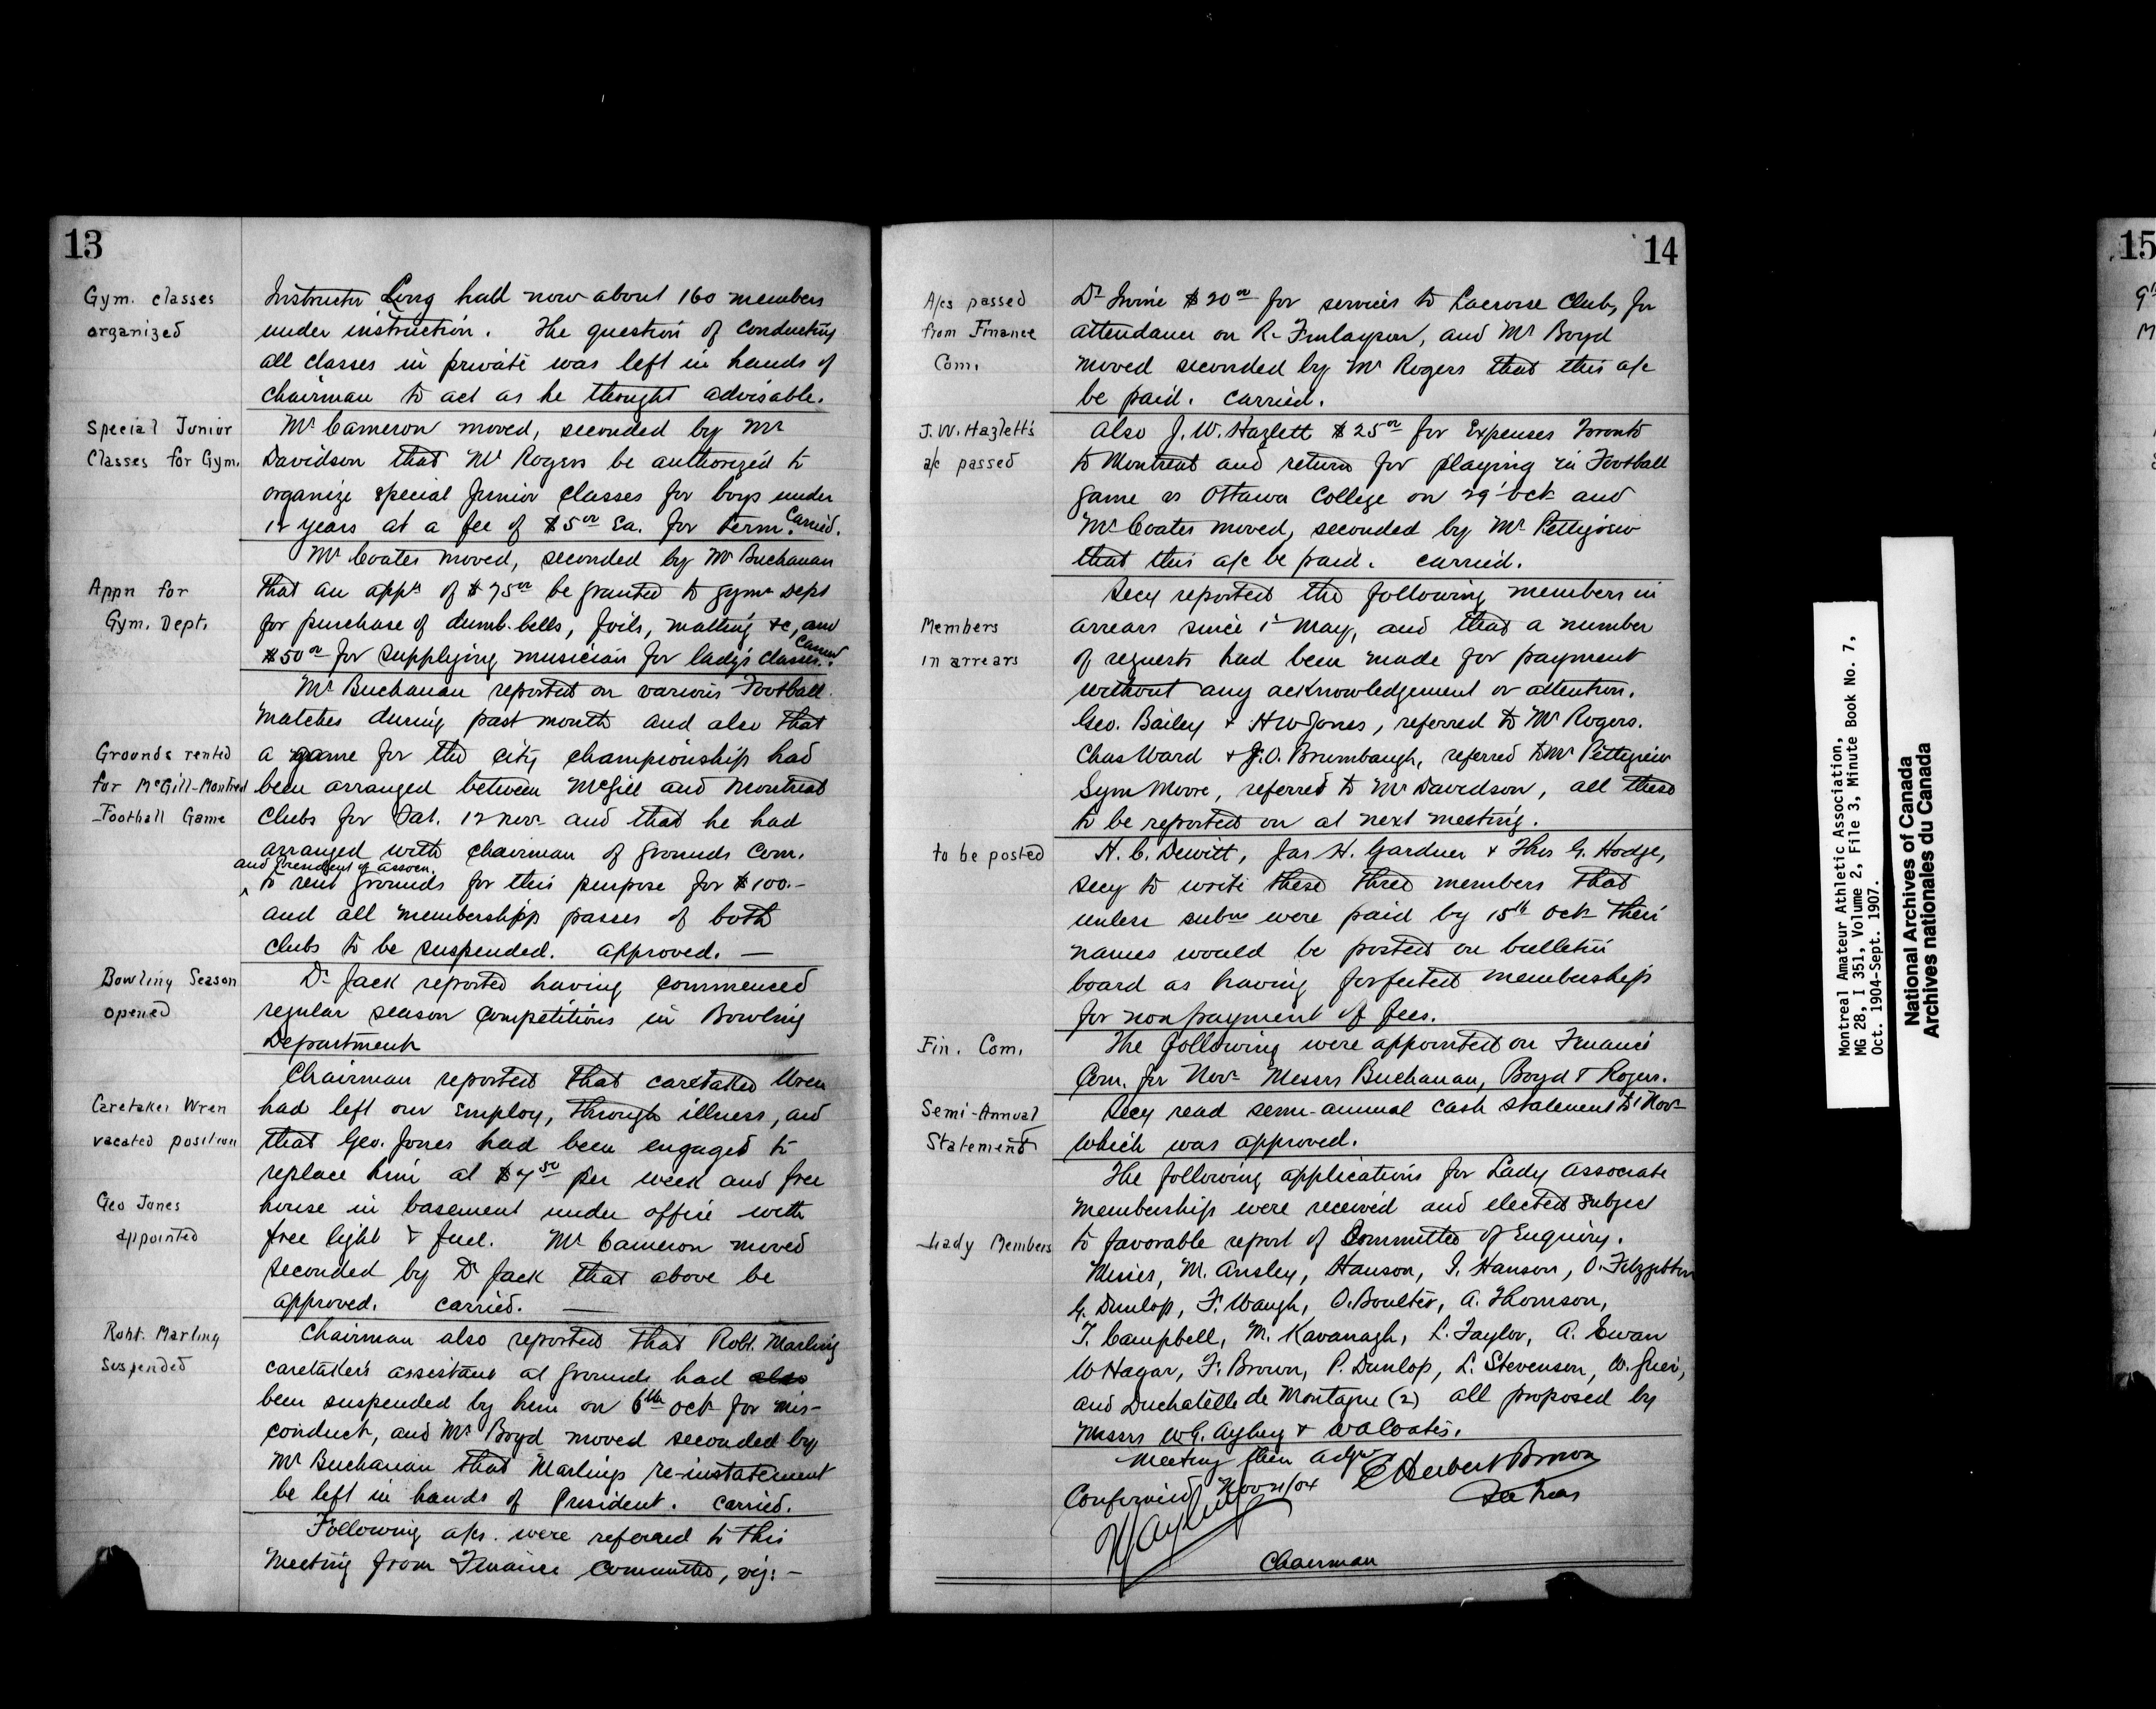 13
Gym. classes
organized
Instructor Long hall now about 160 members
under instruction. The question of conducting
all classes in private was left in hands of
chairman to act as he thought advisable.
Special Junior
Classes for Gym.
Mr Cameron moved, seconded by Mr
Davidson that Mr Rogers be authorized to
organize special Junior Classes for boys under
12 years at a fee of $5.00 Ea. for term. Carried.
Mr Coates moved, seconded by Mr Buchanan
Appn for
Gym. Dept.
that an appn of $75.00 be granted to gym Dept
for purchase of dumb-bells, foils, matting &c, and
$50.00 for supplying musician for lady's classes. Carried
Mr Buchanan reported on various Football
matches during past month and also that
Grounds rented
for McGill-Montreal
Football Game
a game for the city championship had
been arranged between McGill and Montreal
Clubs for Sat. 12 Nov. and that he had
arranged with chairman of Grounds Com.
and President of Assocn.
^ to rent grounds for this purpose for $100.-
and all membership passes of both
clubs to be suspended. approved. —
Bowling Season
opened
Dr Jack reported having commenced
regular season Competitions in Bowling
Department
Chairman reported that caretaker Wren
Caretaker Wren
vacated position
had left our Employ, through illness, and
that Geo. Jones had been engaged to
replace him at $7.50 per week and free
Geo Jones
appointed
house in basement under office with
free light & fuel. Mr Cameron moved
seconded by Dr Jack that above be
approved. carried. —
Robt. Marling
Suspended
Chairman also reported that Robt. Marling
caretaker's assistant at grounds had also
been suspended by him on 6th Oct for mis-
conduct, and Mr Boyd moved seconded by
Mr Buchanan that Marlings re-instatement
be left in hands of President. carried.
Following a/cs. were referred to this
meeting from Finance Committee, viz: -
14
A/cs passed
from Finance
Com.
Dr Irvine $20.00 for services to Lacrosse Club, for
attendance on R. Finlayson, and Mr Boyd
moved seconded by Mr Rogers that this a/c
be paid. Carried.
J.W. Hazlett's
a/c passed
Also J.W. Hazlett $25.00 for Expenses Toronto
to Montreal and return for playing in Football
game vs Ottawa College on 29 Oct and
Mr Coates moved, seconded by Mr Pettigrew
that this a/c be paid. carried.
Secy reported the following members in
Members
in arrears
arrears since 1st May, and that a number
of requests had been made for payment
without any acknowledgement or attention.
Geo. Bailey & H W Jones, referred to Mr Rogers.
Chas Ward & J.O. Brumbaugh, referred to Mr Pettigrew
Sym Moore, referred to Mr Davidson, all these
to be reported on at next meeting.
to be posted
H. C. Dewitt, Jas H. Gardner & Thos G. Hodge,
Secy to write these three members that
unless subns were paid by 15th Oct their
names would be posted on bulletin
board as having forfeited membership
for non payment of fees.
Fin. Com.
The following were appointed on Finance
Com. for Nov. Messrs Buchanan, Boyd & Rogers.
Semi-Annual
Statement
Secy read semi-annual cash statement to 1 Nov.
which was approved.
The following applications for Lady Associate
membership were received and elected subject
Lady Members
to favorable report of Committee of Enquiry.
Misses, M. Ansley, Hanson, I. Hanson, O. Fitzgibbon
G. Dunlop, F. Waugh, O. Boulter, A. Thomson,
T. Campbell, M. Kavanagh, L. Taylor, A. Ewan
W Hagar, F. Brown, P. Dunlop, L. Stevenson, W. Grier,
and Duchatelle de Montague (2) all proposed by
Messrs W G. Ayling & W A Coates.
Meeting then adjd
E Herbert Brown
Sec Treas
Confirmed Nov 21/04
Chairman
15
Montreal Amateur Athletic Association,
MG 28, I 351, Volume 2, File 3, Minute Book No. 7,
Oct. 1904-Sept. 1907.
National Archives of Canada
Archives nationales du Canada